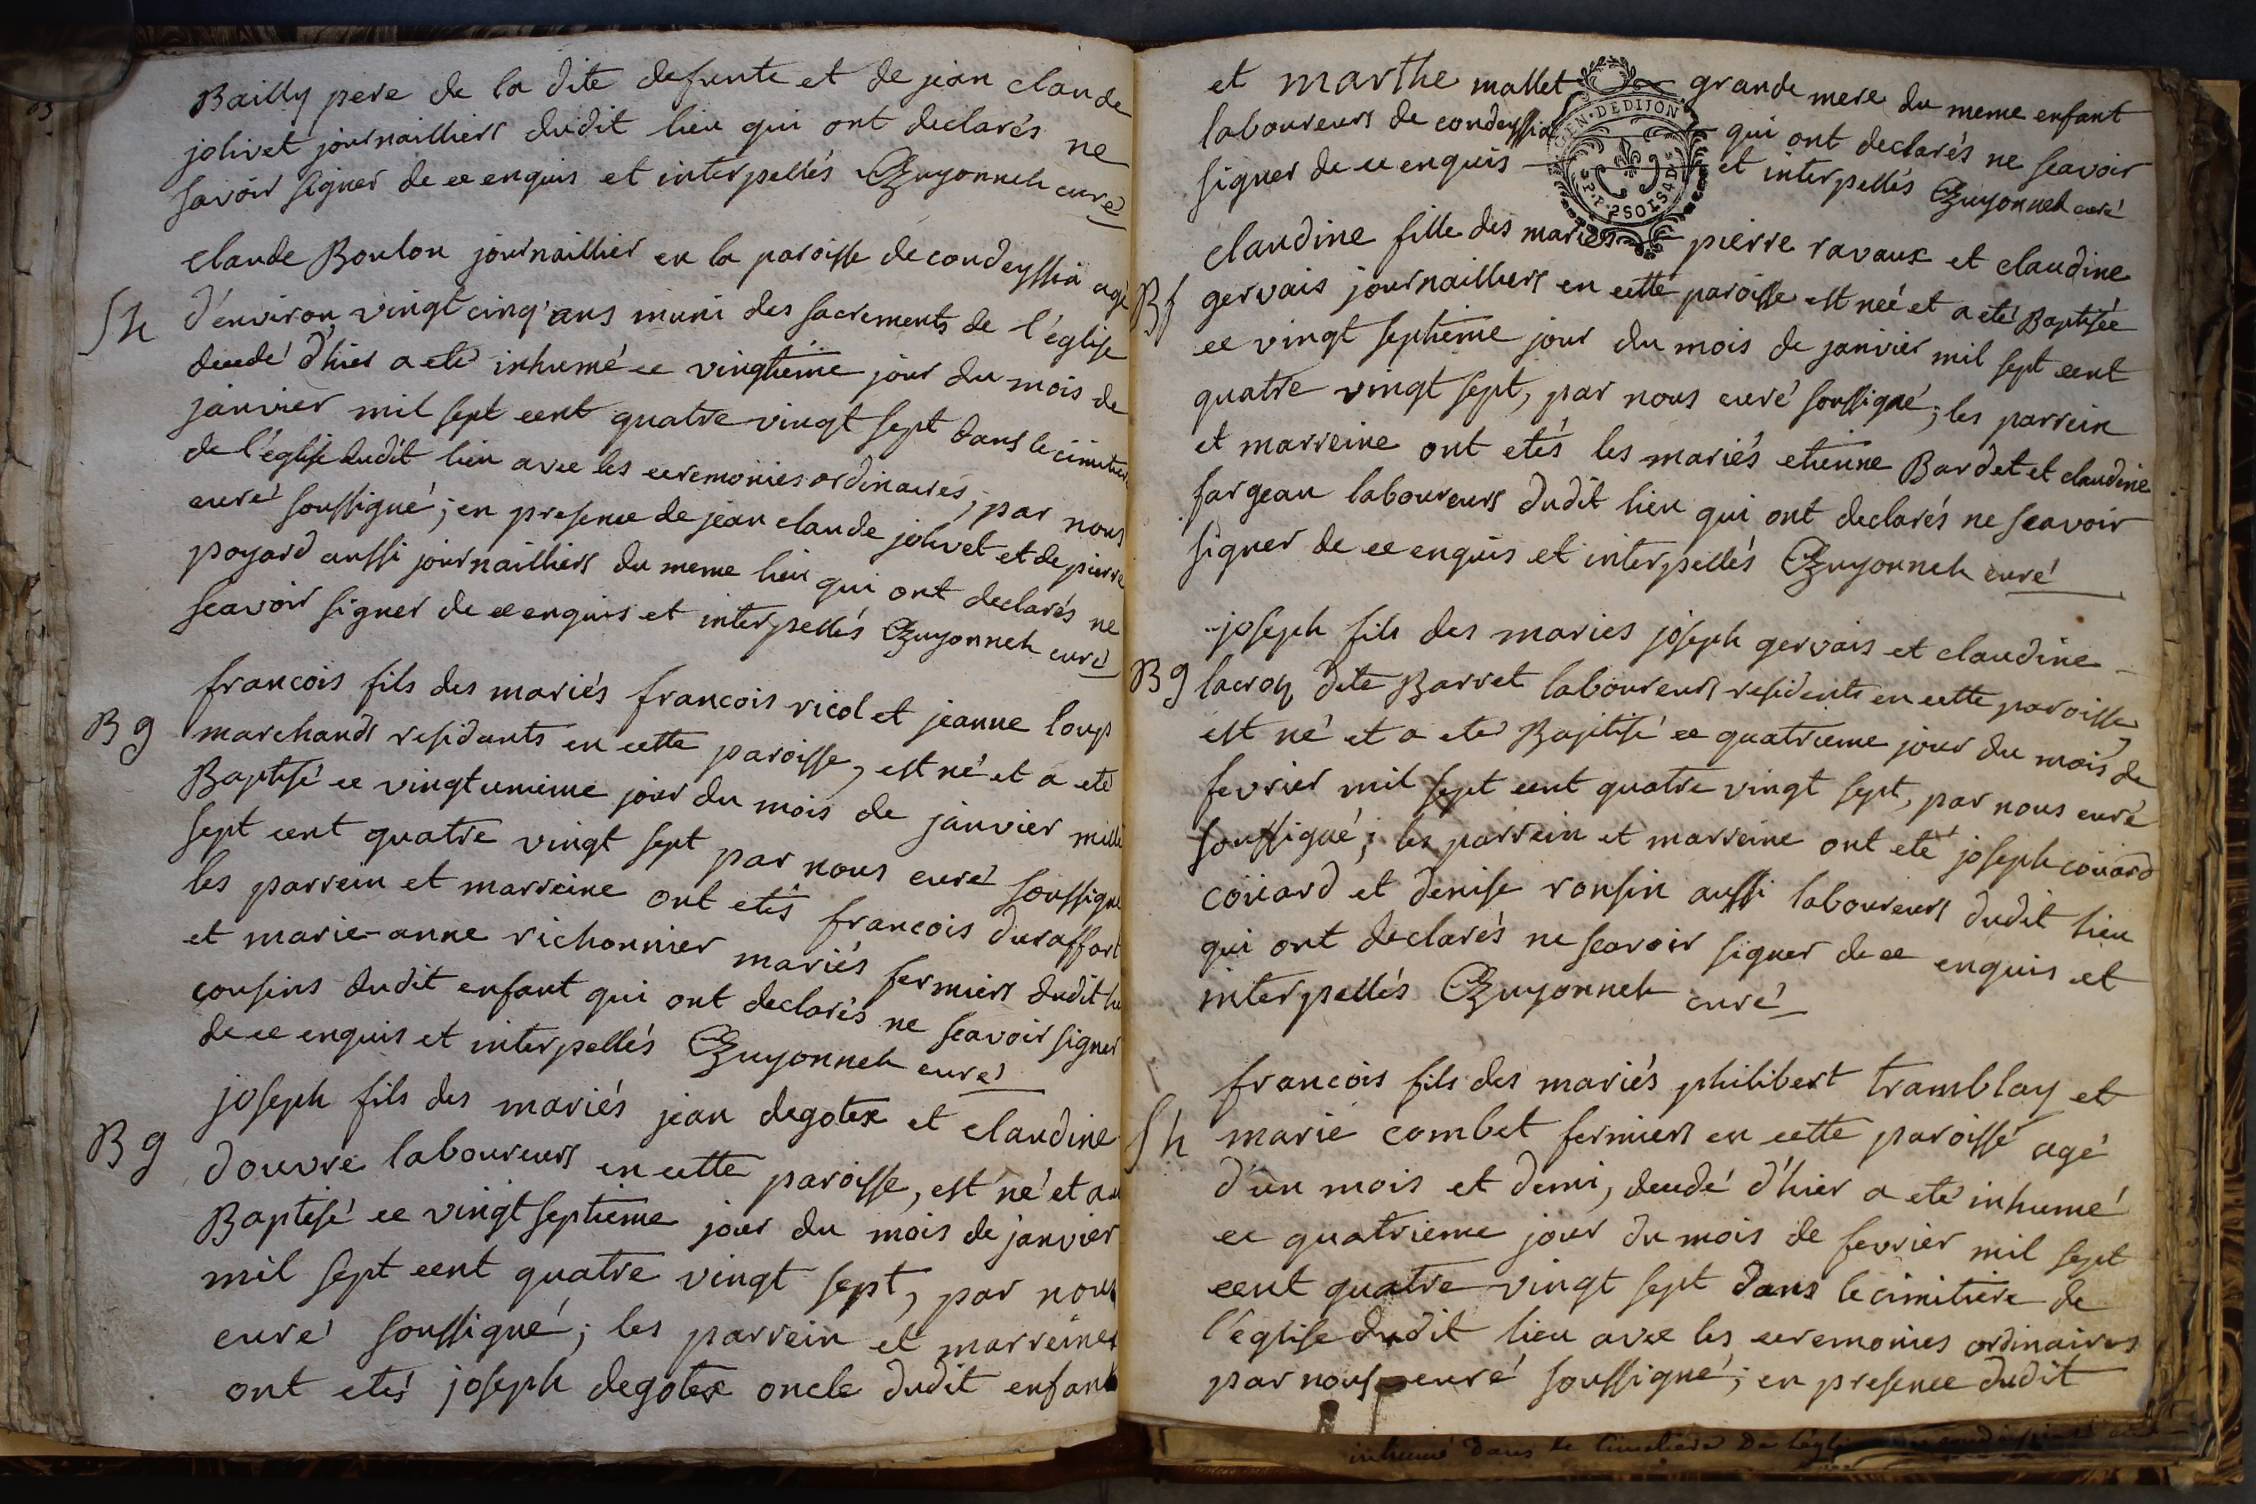 Bailly pere de la dite defunte et de jean claude
jolivet journailliers dudit lieu qui ont declarés ne
savoir signer de ce enquis et interpellés Guyonneh curé
claude Boulon journaillier en la paroisse de condeyssia agé
Sh d'environ vingt cinq ans muni des sacrements de l'église
decedé d'hier a eté inhumé ce vingtième jour du mois de
janvier mil sept cent quatre vingt sept dans le cimitiere
de l'église dudit lieu avec les ceremonies ordinaires, par nous
curé soussigné; en presence de jean claude jolivet et de pierre
poyard aussi journailliers du meme lieu qui ont declarés ne
scavoir signer de ce enquis et interpellés Guyonneh curé
francois fils des mariés francois ricol et jeanne loup
Bg marchands residants en cette paroisse, est né et a eté
Baptisé ce vingt unieme jour du mois de janvier mille
sept cent quatre vingt sept par nous curé soussigné
les parrein et marreine ont etés francois duraffort
et marie-anne richonnier mariés fermiers dudit lieu
cousins dudit enfant qui ont declarés ne scavoir signer
de ce enquis et interpellés Guyonneh curé
joseph fils des mariés jean degotex et claudine
Bg douvre laboureurs en cette paroisse, est né et a eté
Baptisé ce vingt septieme jour du mois de janvier
mil sept cent quatre vingt sept, par nous
curé soussigné; les parrein et marreines
ont etés joseph degotex oncle dudit enfant
et marthe mallet grande mere du meme enfant
laboureurs de condeyssia qui ont declarés ne scavoir
signer de ce enquis et interpellés Guyonneh curé
GEN·DEDIJON
P·P·2SOIS4D
claudine fille des mariés pierre ravaux et claudine
Bf gervais journailliers en cette paroisse est neé et a eté Baptisée
ce vingt septieme jour du mois de janvier mil sept cent
quatre vingt sept, par nous curé soussigné; les parrein
et marreine ont etés les mariés etienne Bardet et claudine
fargeau laboureurs dudit lieu qui ont declarés ne scavoir
signer de ce enquis et interpellés Guyonneh curé
joseph fils des mariés joseph gervais et claudine
Bg lacroy dite Barret laboureurs residents en cette paroisse,
est né et a eté Baptisé ce quatrieme jour du mois de
fevrier mil sept cent quatre vingt sept, par nous curé
soussigné; les parrein et marreine ont eté joseph coüard
coüard et denise ronsin aussi laboureurs dudit lieu
qui ont declarés ne scavoir signer de ce enquis et
interpellés Guyonneh curé
francois fils des mariés philibert tramblay et
Sh marie combet fermiers en cette paroisse agé
d'un mois et demi, decedé d'hier a eté inhumé
ce quatrieme jour du mois de fevrier mil sept
cent quatre vingt sept dans le cimitiere de
l'église dudit lieu avec les ceremonies ordinaires
par nous curé soussigné; en presence dudit
inhumé dans le Cimetiere De